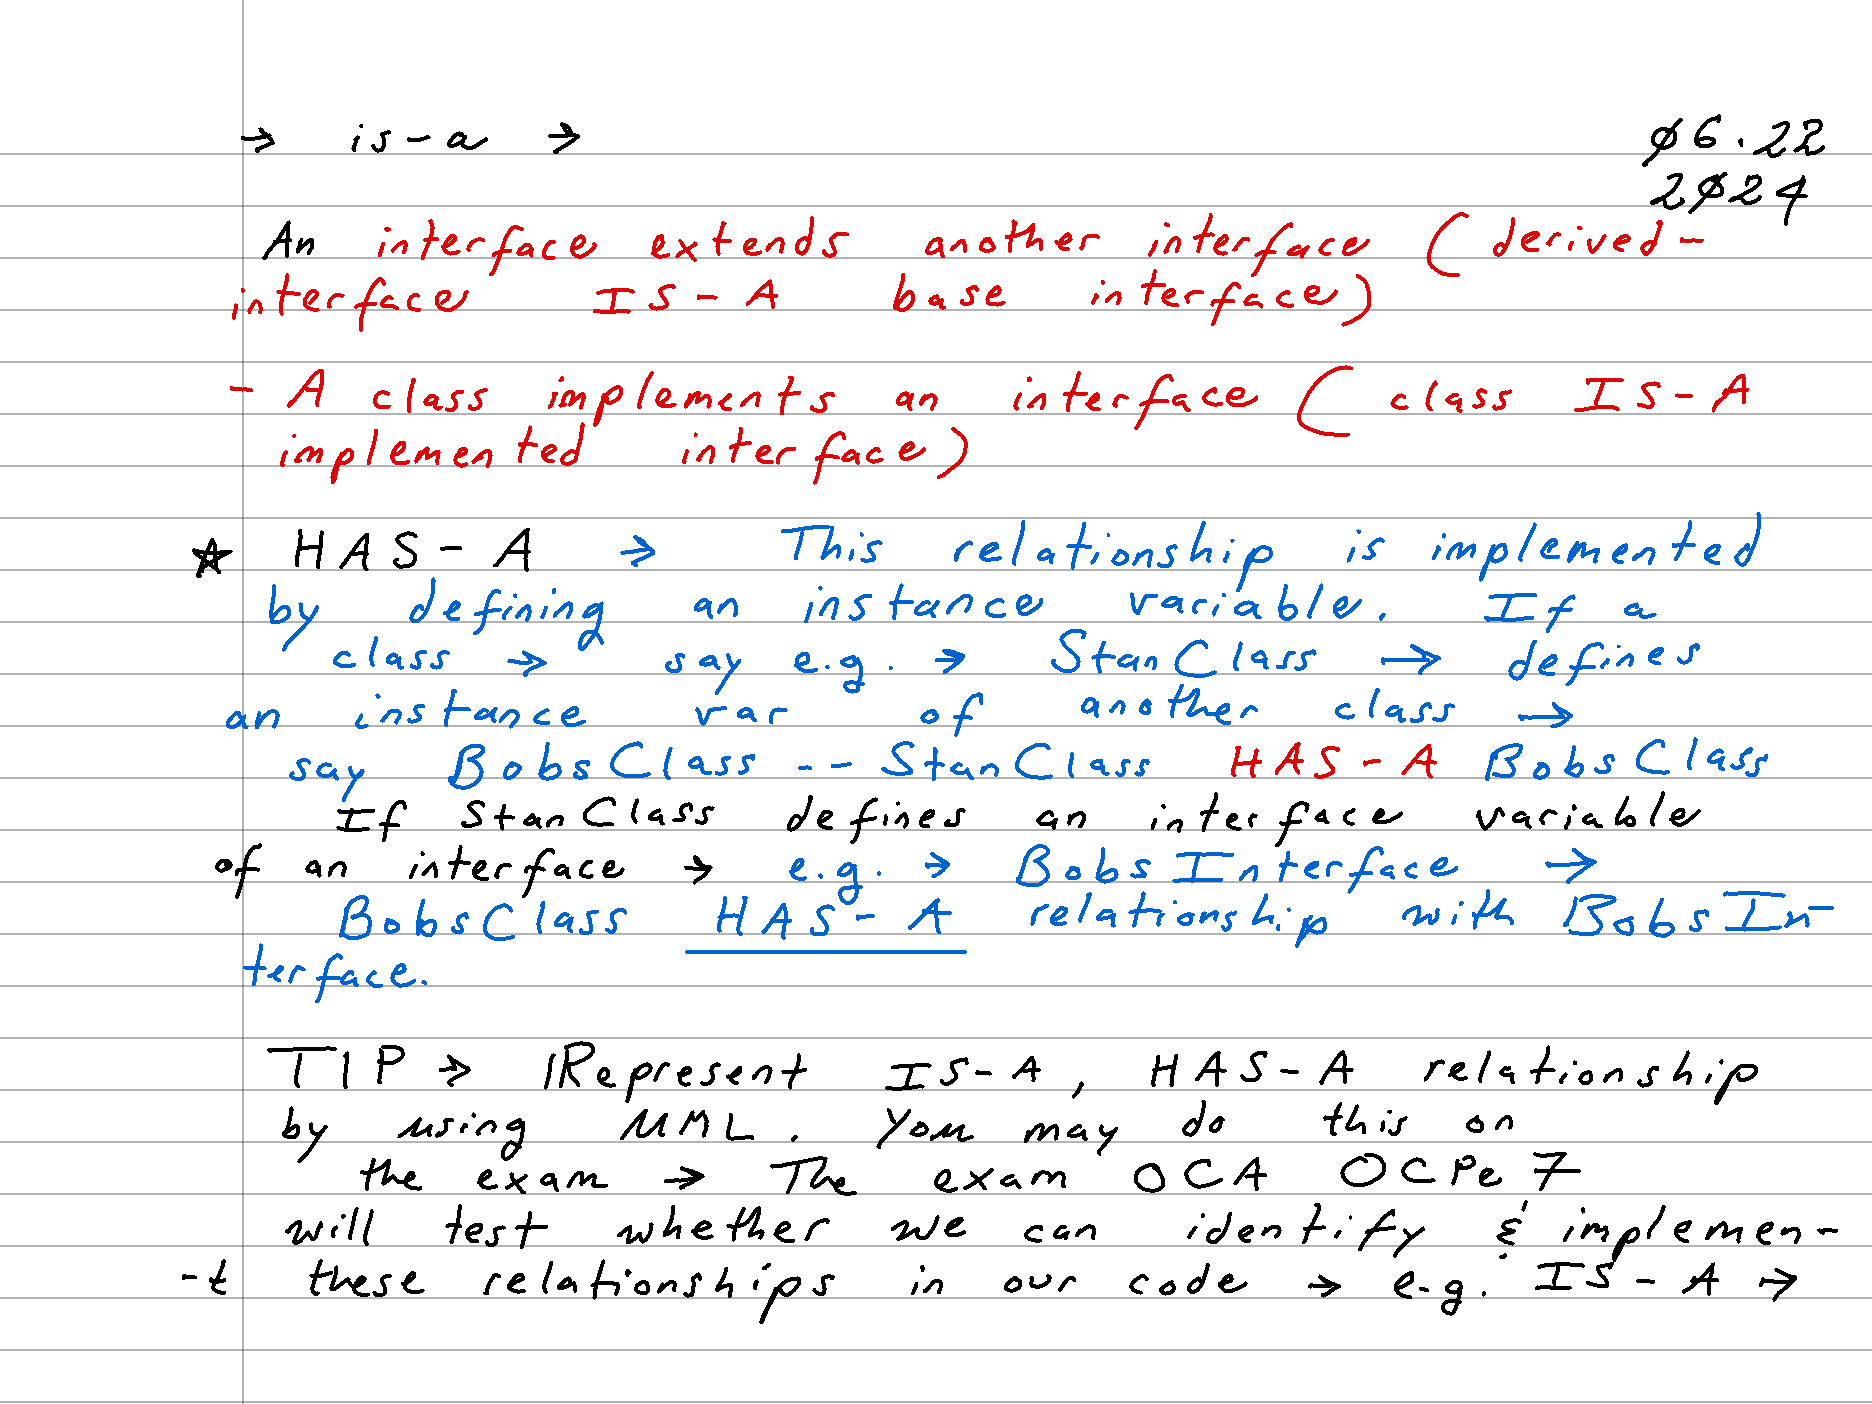 → is-a →
Ø6.22
2Ø24
An interface extends another interface (derived-
interface IS-A base interface)
- A class implements an interface (class IS-A
implemented interface)
☆ HAS-A → This relationship is implemented
by defining an instance variable. If a
class → say e.g. → StanClass → defines
an instance var of another class →
say BobsClass -- StanClass HAS-A BobsClass
If StanClass defines an interface variable
of an interface → e.g. → BobsInterface →
BobsClass HAS-A relationship with BobsIn-
terface.
TIP → Represent IS-A, HAS-A relationship
by using UML. You may do this on
the exam → The exam OCA OCPe 7
will test whether we can identify & implemen-
-t these relationships in our code → e.g. IS-A →